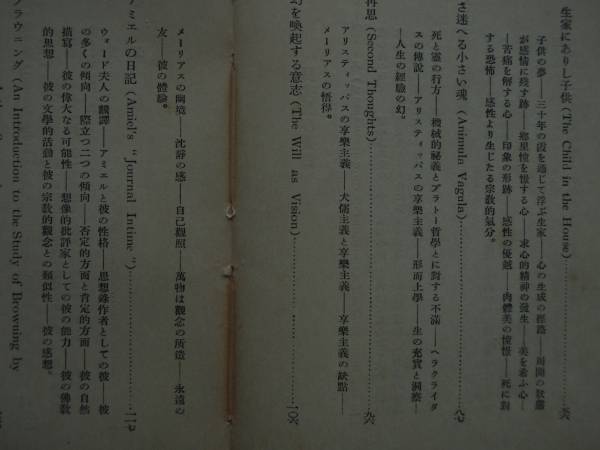 生家にありし子供 (The Child in the House)
子供の夢――三十年の霞を通じて浮ぶ生家――心の生成の經路――周圍の狀態
が感情に殘す跡――鄕里憧憬する心――求心的精神の發生――美を希ふ心――
――苦痛を解する心――印象の形跡――感性の優越――肉體美の憧憬――死に對
する恐怖――感性より生じたる宗敎的氣分。
さ迷へる小さい魂 (Animula Vagula)……八七
死と靈の行方――機械的祕義とプラトー哲學とに對する不滿――ヘラクライタ
スの傳說――アリスティッパスの享樂主義――形而上學――生の充實と洞察――
――人生の經驗の幻。
再思 (Second Thoughts)……九六
アリスティッパスの享樂主義――犬儒主義と享樂主義――享樂主義の缺點――
メーリアスの悟得。
幻を喚起する意志 (The Will as Vision)……一〇六
メーリアスの幽境――沈靜の感――自己觀照――萬物は觀念の所造――永遠の
友――彼の體驗。
アミエルの日記 (Amiel's "Journal Intime")……一一七
ウォード夫人の飜譯――アミエルと彼の性格――思想錄作者としての彼――彼
の多くの傾向――際立つ二つの傾向――否定的方面と肯定的方面――彼の自然
描寫――彼の偉大なる可能性――想像的批評家としての彼の能力――彼の佛敎
的思想――彼の文學的活動と彼の宗敎的觀念との類似性――彼の感想。
ブラウニング (An Introduction to the Study of Browning by